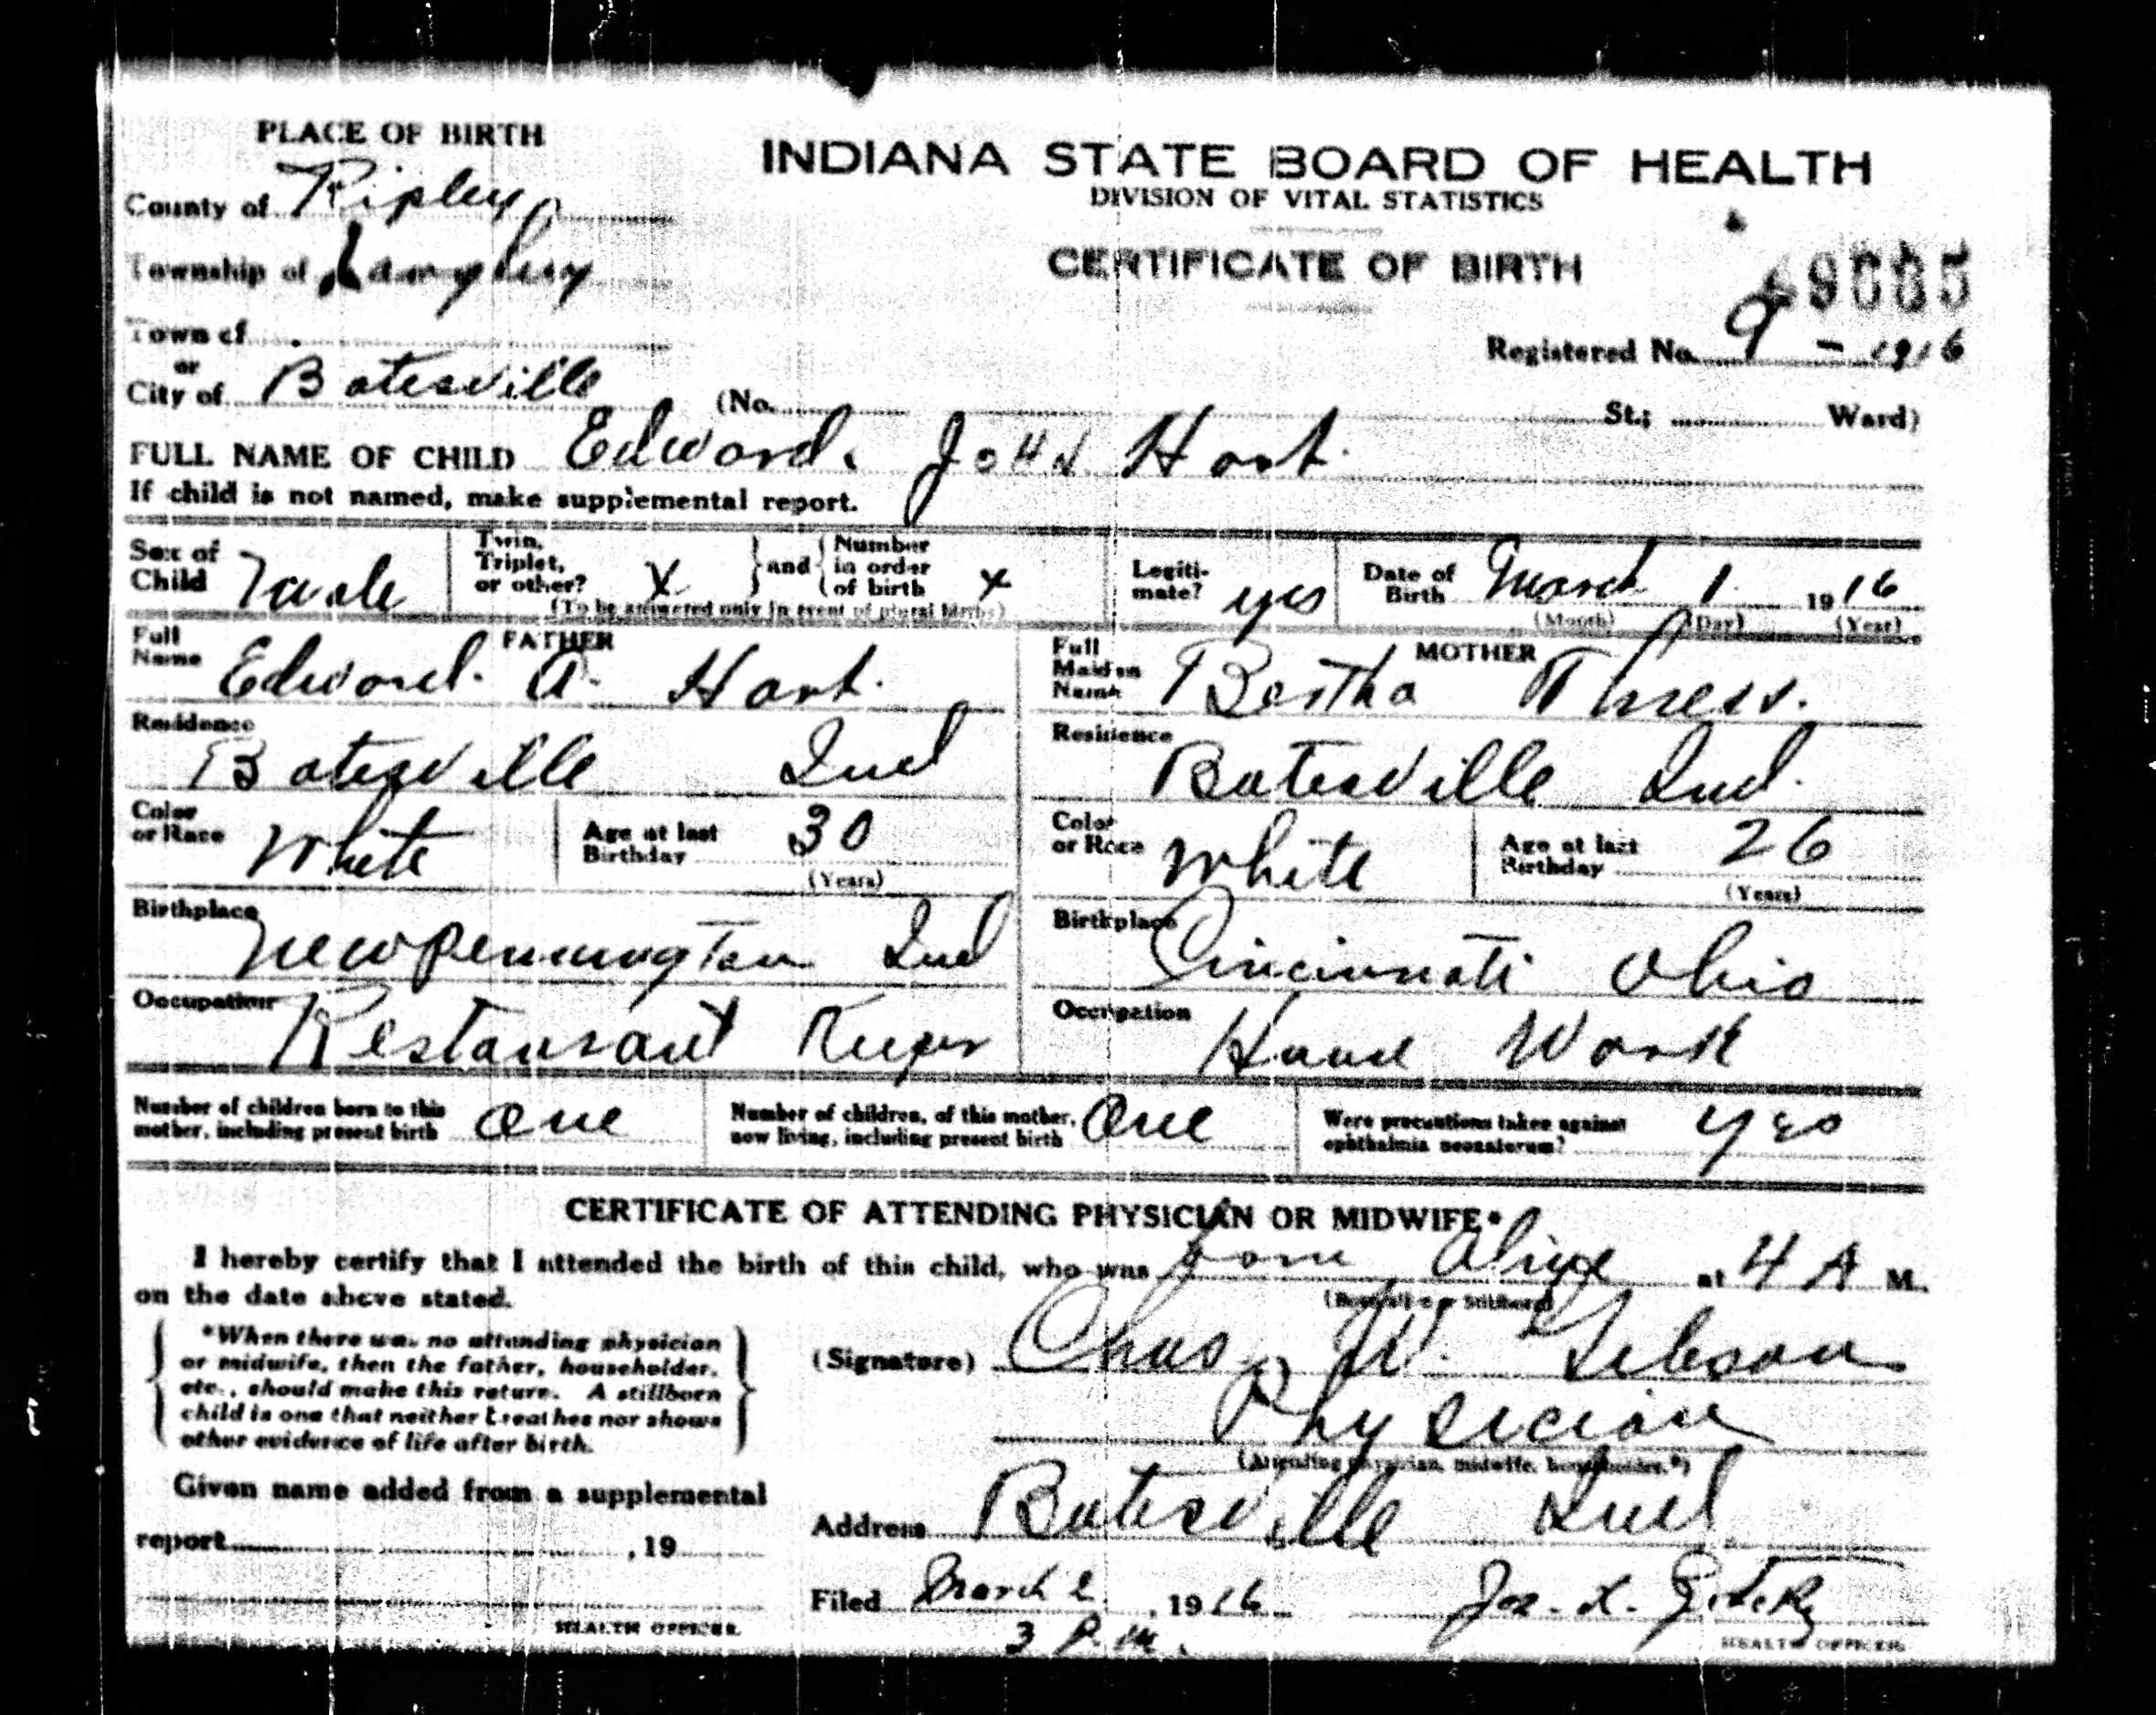 PLACE OF BIRTH
INDIANA STATE BOARD OF HEALTH
DIVISION OF VITAL STATISTICS
CERTIFICATE OF BIRTH
County of Ripley
Township of
Town of
or
City of Batesville
Registered No. 9 - 1916
(No. St.; Ward)
FULL NAME OF CHILD Edward John Hart
If child is not named, make supplemental report.
Sex of Child Male
Twin, Triplet, or other? X and Number in order of birth X
(To be answered only in event of plural births)
Legitimate? yes
Date of Birth March 1 1916
(Month) (Day) (Year)
FATHER
Full Name Edward A. Hart
Residence Batesville Ind
Color or Race White
Age at last Birthday 30
(Years)
Birthplace New Pennington Ind
Occupation Restaurant Keeper
MOTHER
Full Maiden Name Bertha
Residence Batesville Ind.
Color or Race White
Age at last Birthday 26
(Years)
Birthplace Cincinnati Ohio
Occupation House Work
Number of children born to this mother, including present birth One
Number of children, of this mother, now living, including present birth One
Were precautions taken against ophthalmia neonatorum? yes
CERTIFICATE OF ATTENDING PHYSICIAN OR MIDWIFE*
I hereby certify that I attended the birth of this child, who was born alive at 4 A M.
on the date above stated.
*When there was no attending physician
or midwife, then the father, householder,
etc., should make this return. A stillborn
child is one that neither breathes nor shows
other evidence of life after birth.
(Signature) Chas. W. Gibson
Physician
(Attending physician, midwife, householder.*)
Given name added from a supplemental
report , 19
HEALTH OFFICER.
Address Batesville Ind
Filed March 2, 1916
3 P.M.
HEALTH OFFICER.